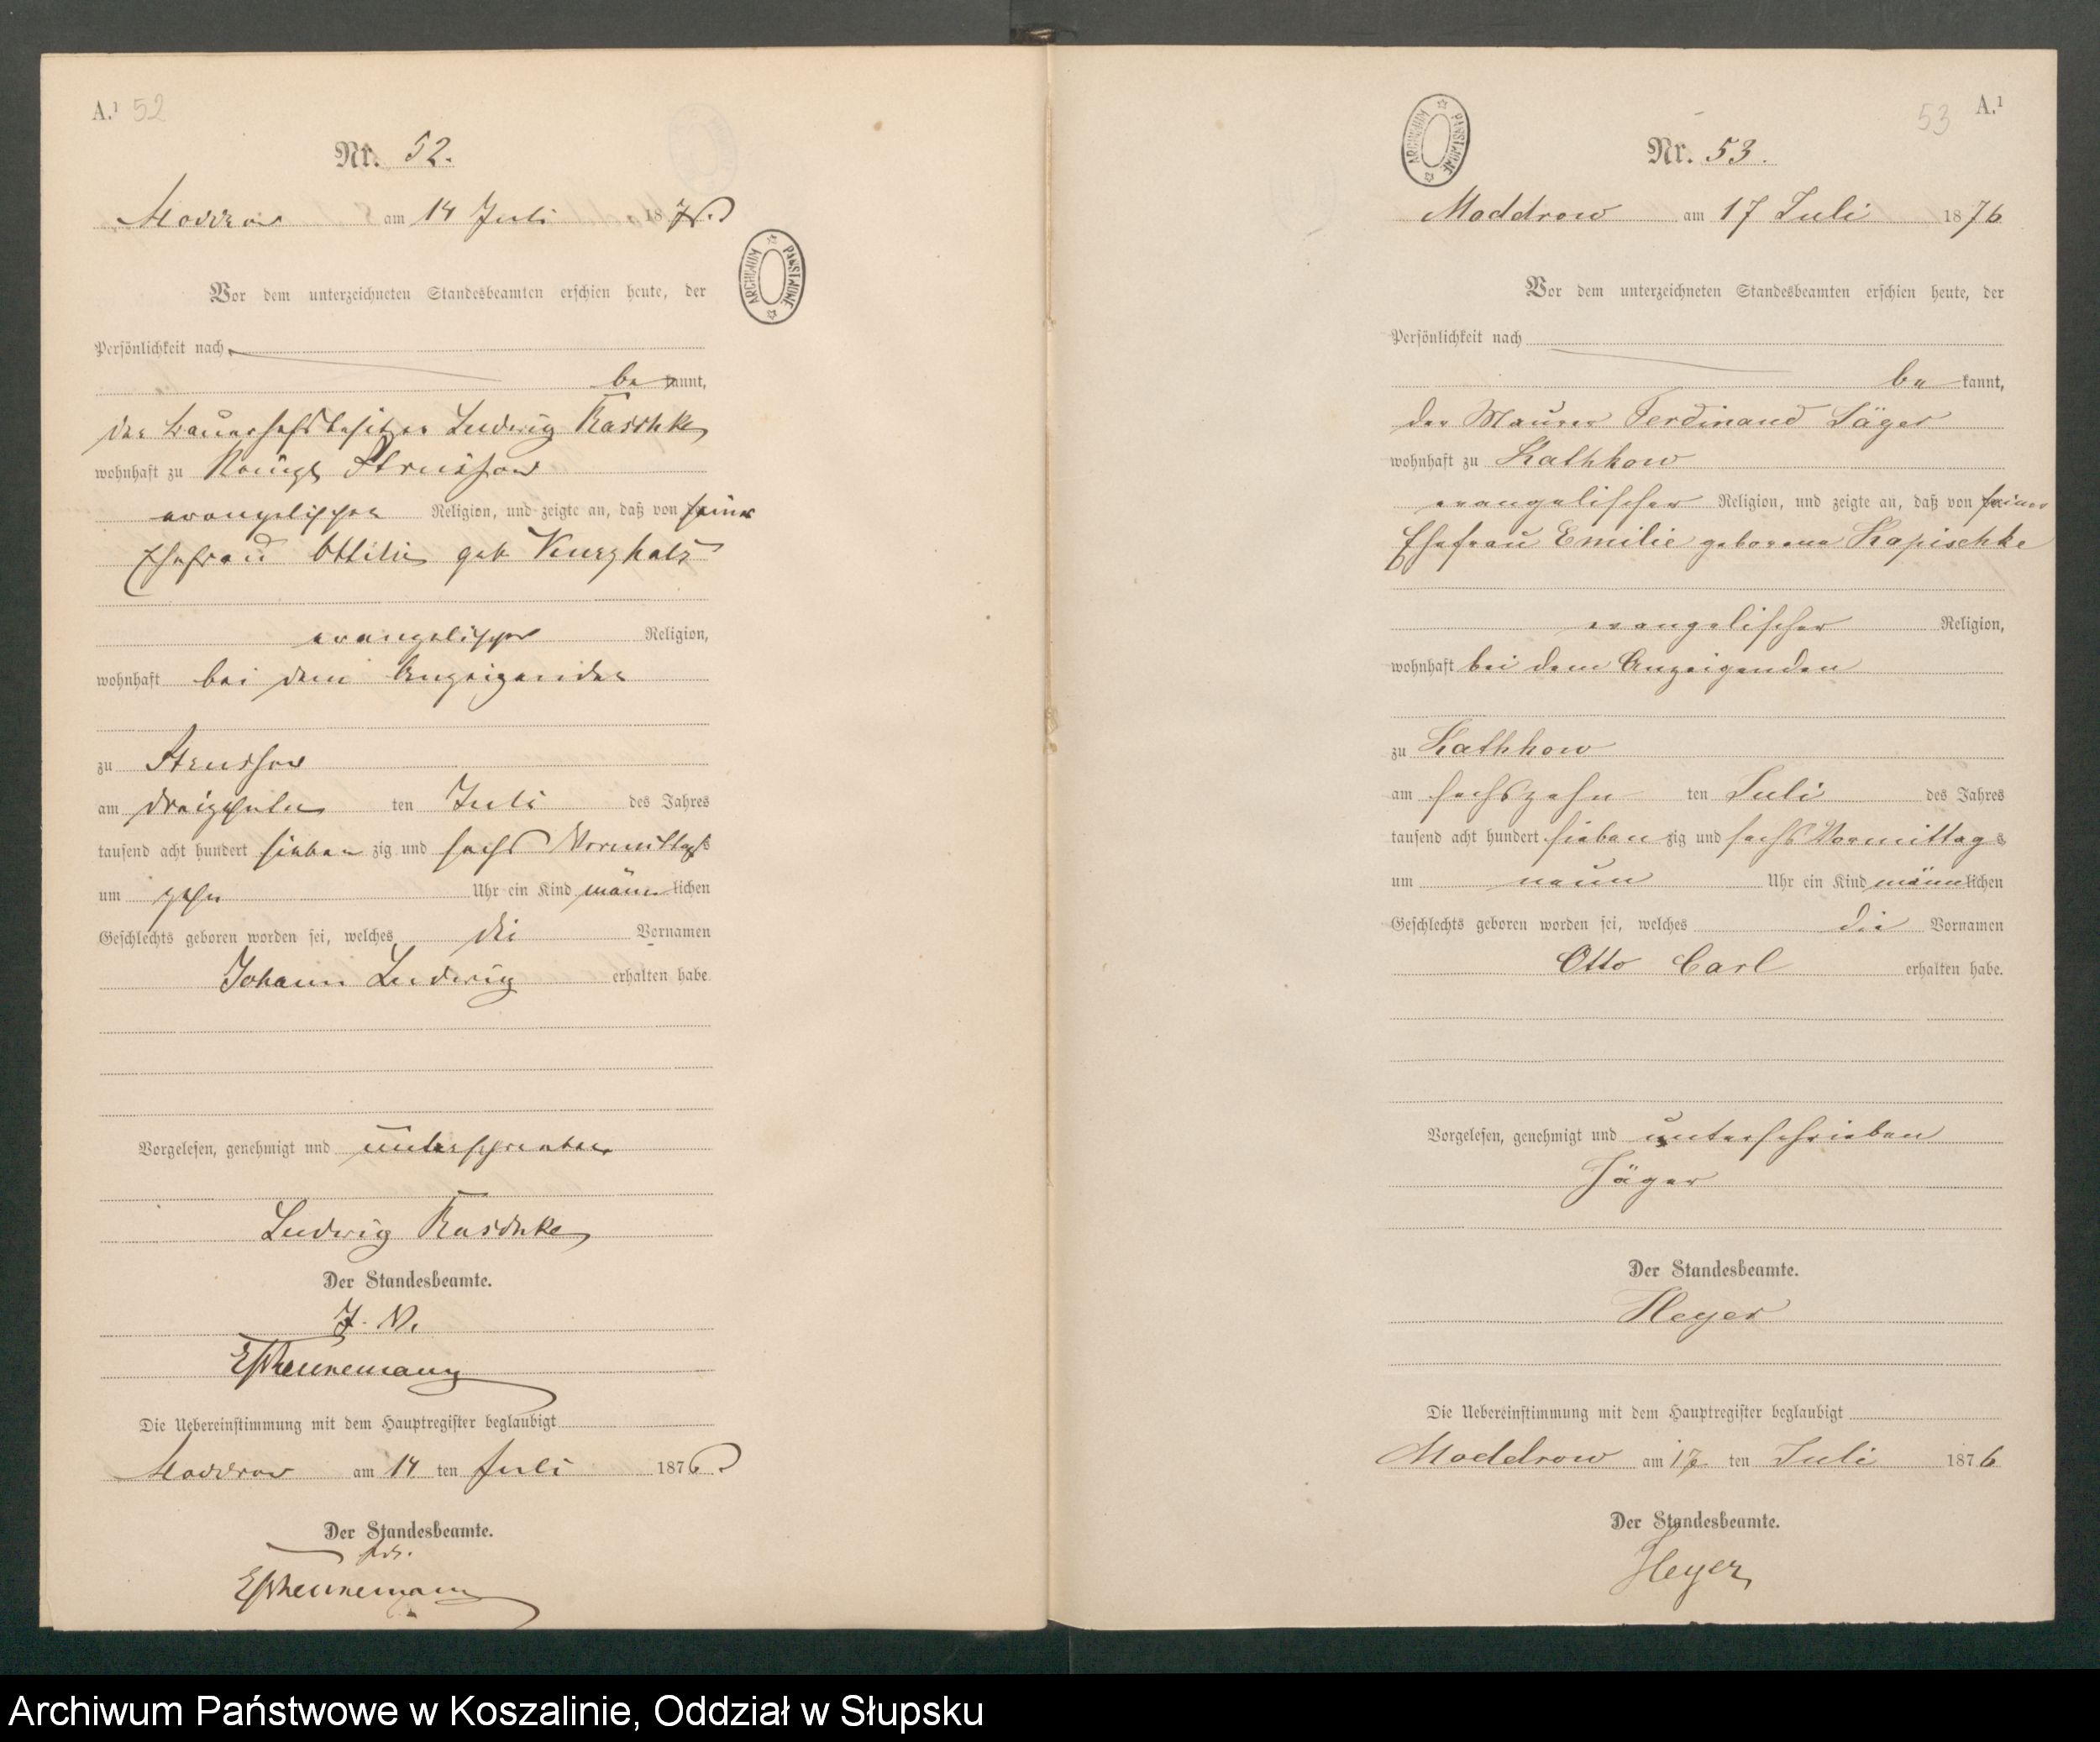 A.¹ 52
Nr. 52.
Moddrow am 14 Juli 1876.
ARCHIWUM PAŃSTWOWE
Vor dem unterzeichneten Standesbeamten erschien heute, der
Persönlichkeit nach
be kannt,
der Bauerhofsbesitzer Ludwig Raschke
wohnhaft zu Königl Strussow
evangelischer Religion, und zeigte an, daß von seiner
Ehefrau Ottilie geb Kurzhals
evangelischer Religion,
wohnhaft bei dem Anzeigenden
zu Strussow
am dreizehnten ten Juli des Jahres
tausend acht hundert sieben zig und sechs Vormittags
um zehn Uhr ein Kind männ lichen
Geschlechts geboren worden sei, welches die Vornamen
Johann Ludwig erhalten habe.
Vorgelesen, genehmigt und unterschrieben
Ludwig Raschke
Der Standesbeamte.
J. V.
Die Uebereinstimmung mit dem Hauptregister beglaubigt
Moddrow am 14 ten Juli 1876
Der Standesbeamte.
A.¹
53
Nr. 53.
ARCHIWUM PAŃSTWOWE
Moddrow am 17 Juli 1876
Vor dem unterzeichneten Standesbeamten erschien heute, der
Persönlichkeit nach
be kannt,
der Maurer Ferdinand Jäger
wohnhaft zu Kathkow
evangelischer Religion, und zeigte an, daß von seiner
Ehefrau Emilie geborene Kapischke
evangelischer Religion,
wohnhaft bei dem Anzeigenden
zu Kathkow
am sechszehn ten Juli des Jahres
tausend acht hundert sieben zig und sechs Vormittags
um neun Uhr ein Kind männlichen
Geschlechts geboren worden sei, welches die Vornamen
Otto Carl erhalten habe.
Vorgelesen, genehmigt und unterschrieben
Jäger
Der Standesbeamte.
Heyer
Die Uebereinstimmung mit dem Hauptregister beglaubigt
Moddrow am 17 ten Juli 1876
Der Standesbeamte.
Heyer
Archiwum Państwowe w Koszalinie, Oddział w Słupsku